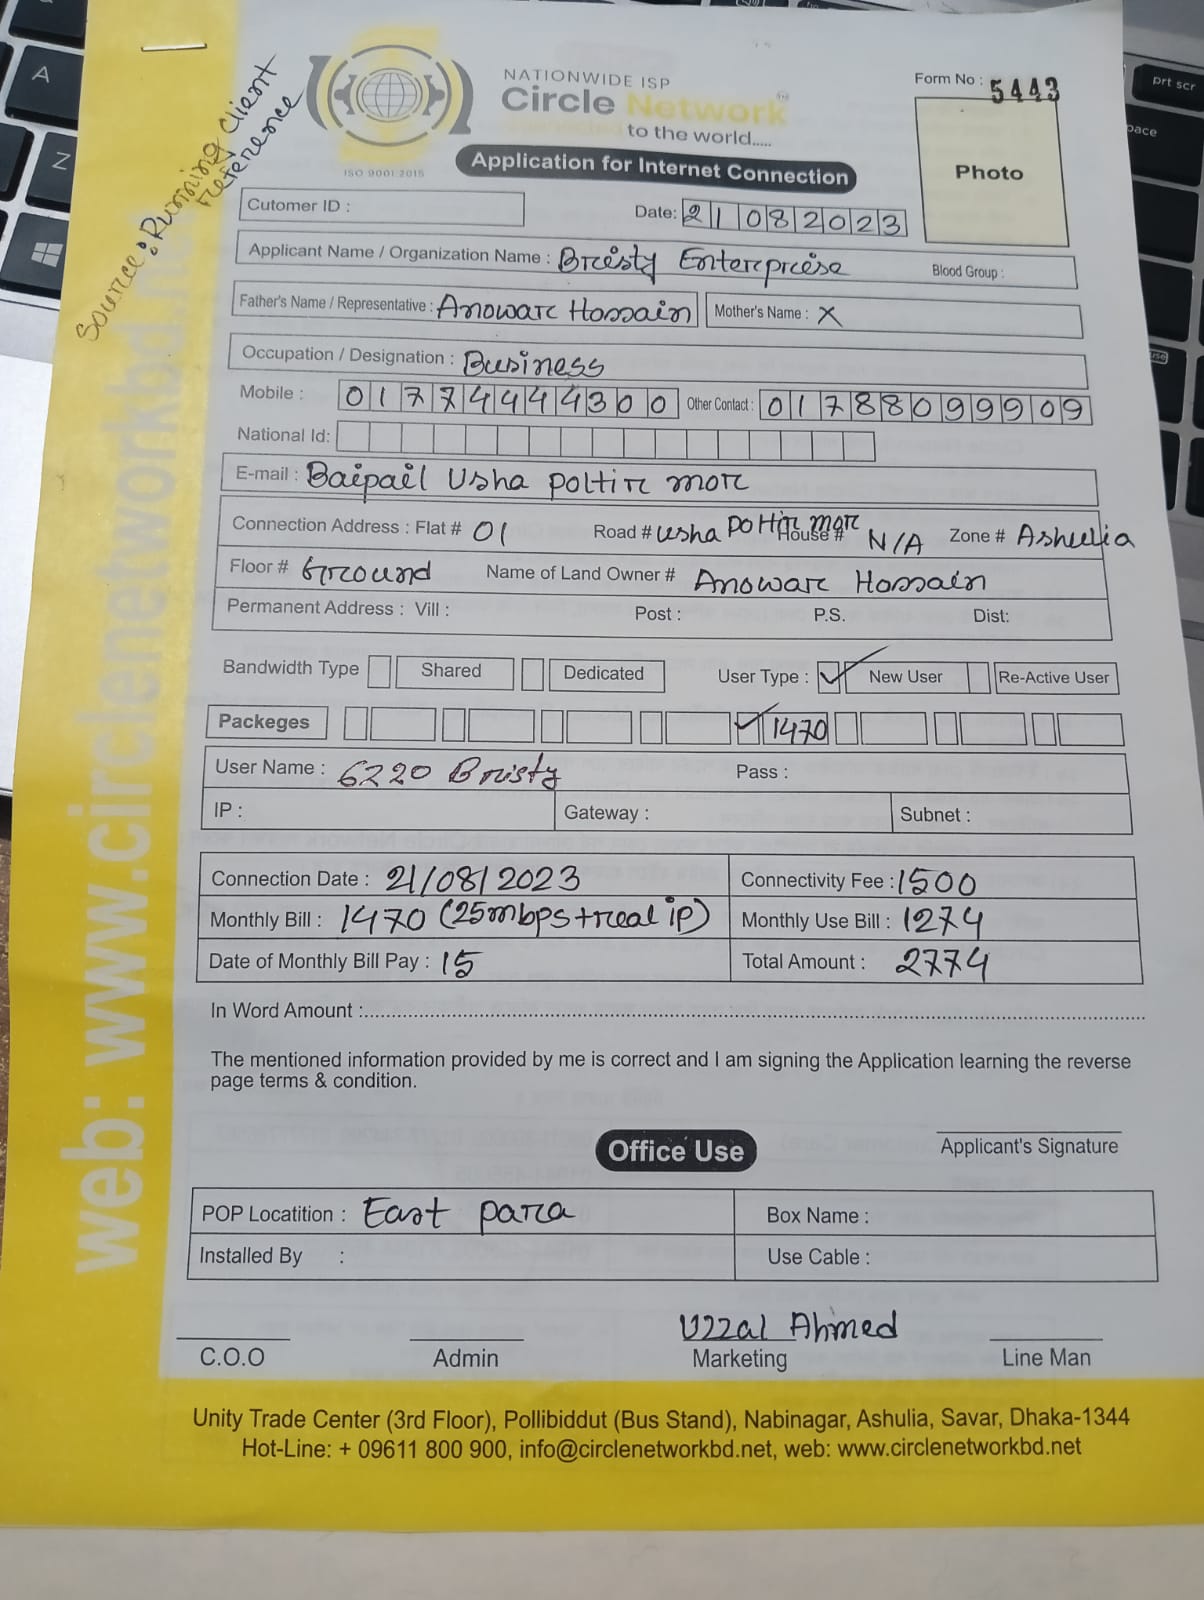 Source: Running Client
reference
NATIONWIDE ISP
Circle Network
to the world.....
ISO 9001:2015
Form No : 5443
Photo
Application for Internet Connection
Cutomer ID :
Date: 21082023
Applicant Name / Organization Name : Bristy Enterprise Blood Group :
Father's Name / Representative : Anowar Hossain Mother's Name : X
Occupation / Designation : Business
Mobile : 01774444300 Other Contact : 01788099909
National Id:
E-mail : Baipail Usha Poltir mor
Connection Address : Flat # 01 Road # Usha Poltir mor House # N/A Zone # Ashulia
Floor # Ground Name of Land Owner # Anowar Hossain
Permanent Address : Vill : Post : P.S. Dist:
Bandwidth Type Shared Dedicated User Type : New User Re-Active User
Packeges 1470
User Name : 6220 Bristy Pass :
IP : Gateway : Subnet :
Connection Date : 21/08/2023 Connectivity Fee : 1500
Monthly Bill : 1470 (25mbps+real ip) Monthly Use Bill : 1274
Date of Monthly Bill Pay : 15 Total Amount : 2774
In Word Amount :
The mentioned information provided by me is correct and I am signing the Application learning the reverse
page terms & condition.
Applicant's Signature
Office Use
POP Locatition : East para Box Name :
Installed By : Use Cable :
Uzzal Ahmed
C.O.O Admin Marketing Line Man
Unity Trade Center (3rd Floor), Pollibiddut (Bus Stand), Nabinagar, Ashulia, Savar, Dhaka-1344
Hot-Line: + 09611 800 900, info@circlenetworkbd.net, web: www.circlenetworkbd.net
web: www.circlenetworkbd.ne
A
Z
prt scr
pace